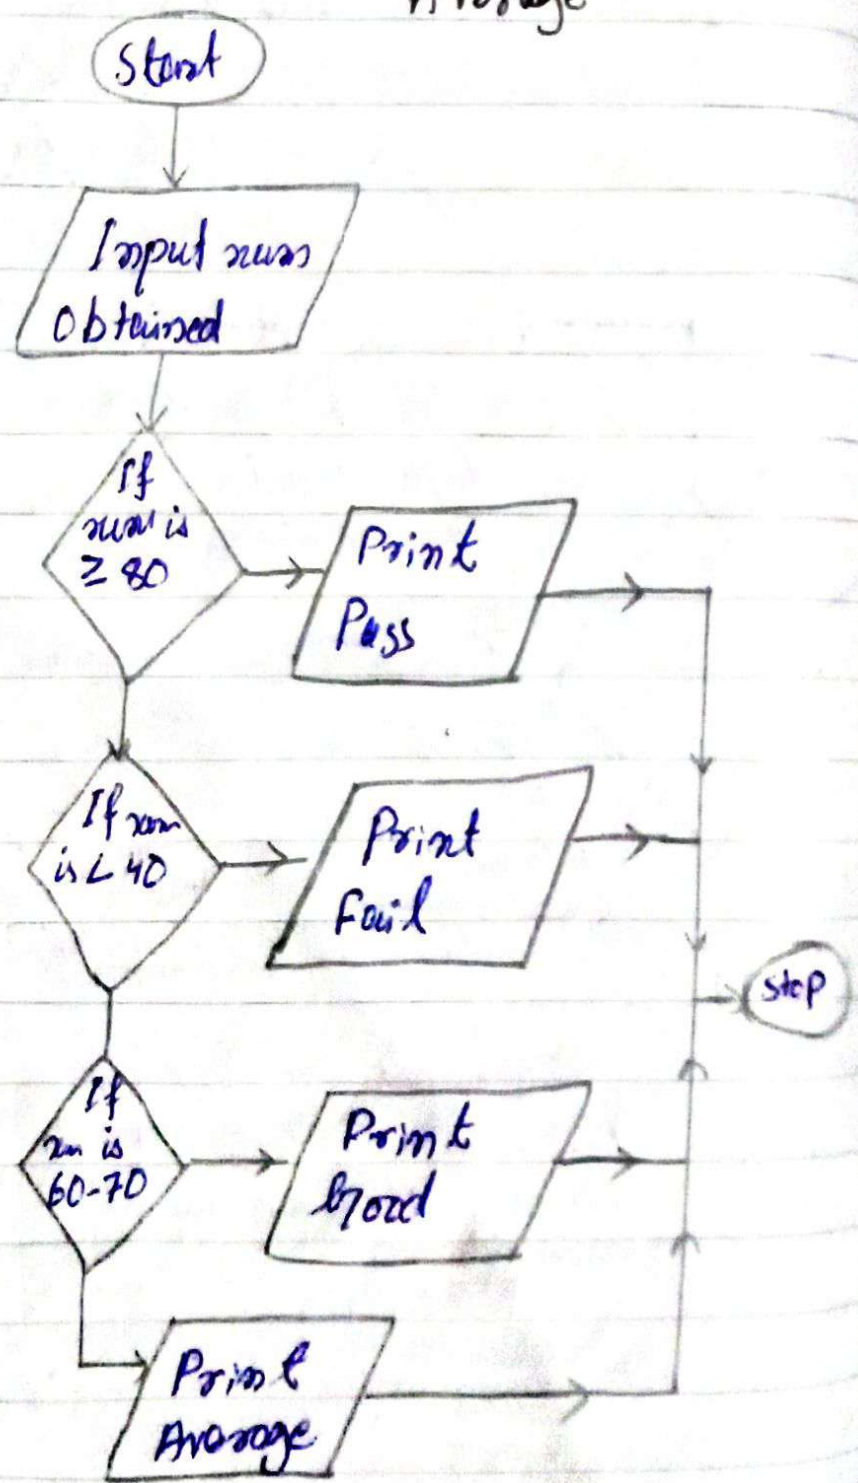 Average
Start
Input num
obtained
If
num is
≥ 80
Print
Pass
If num
is < 40
Print
Fail
Stop
If
num is
60-70
Print
Good
Print
Average